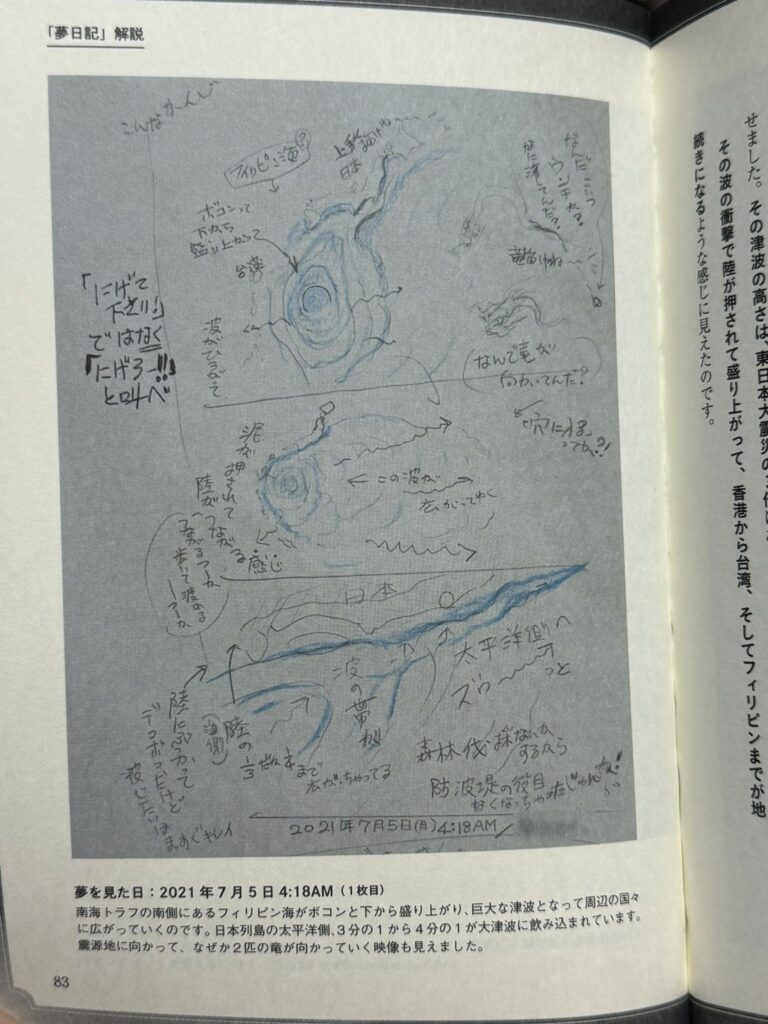 「夢日記」解説
こんなかんじ
フィリピン海?
上手く
日本 描けね〜
なんだこいつ
ウンチか?
なに凄してんだっ?
ボコンって
下から
盛り上がって
台湾
竜描けね〜
「にげて
下さい!」
ではなく
「にげろー!!」
と叫べ
波がひろがって
なんで竜が
向かいてんだ?
「穴に
ってか?!
泥が押されて
陸がつながる感じ
この波が
広がってゆく
つながるつーか
歩いて渡れる
つーか
日本
太平洋側へ
ズウ〜〜っと
波の帯が
陸にぶつかって
デコボコだけど
波じたいは
まっすぐキレイ
(海側)
陸の1/3位まで
広がっちゃってる
森林伐採なんか
するから
防波堤の役目
なくなっちゃったじゃんか!
2021年7月5日(月)4:18AM
夢を見た日:2021年7月5日4:18AM(1枚目)
南海トラフの南側にあるフィリピン海がボコンと下から盛り上がり、巨大な津波となって周辺の国々
に広がっていくのです。日本列島の太平洋側、3分の1から4分の1が大津波に飲み込まれています。
震源地に向かって、なぜか2匹の竜が向かっていく映像も見えました。
83
せました。その津波の高さは、東日本大震災の3倍
その波の衝撃で陸が押されて盛り上がって、香港から台湾、そしてフィリピンまでが地
続きになるような感じに見えたのです。